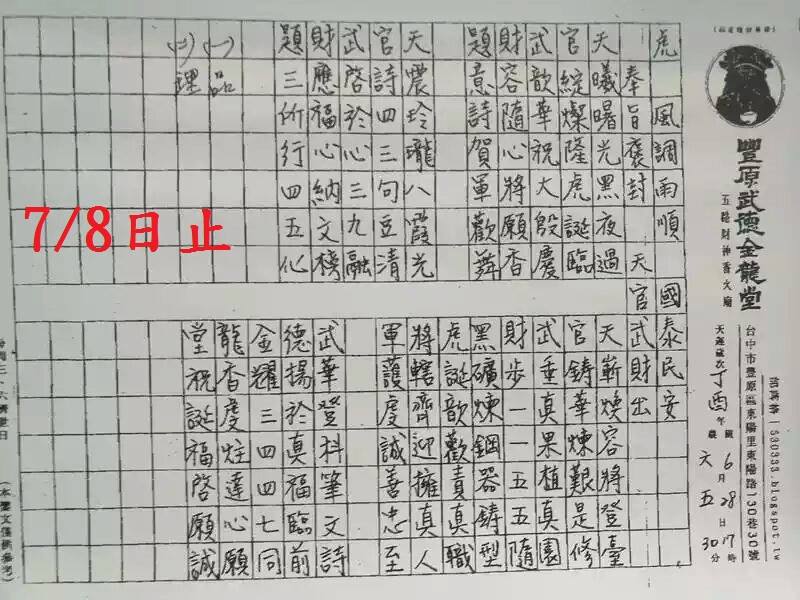 豐原武德金龍堂
五路財神香火廟
台中市豐原區東陽里東陽路130巷30號
i530333.blogspot.tw
天運歲次丁酉年 國6月28日17時
農六五30分
虎 風調雨順 國泰民安
奉旨褒封 天官武財出
天曦曙光黑夜過
官綻燦隆虎誕臨
武歆華祝大殷慶
財容隨心將願香
題意詩賀軍歡舞
天嶄煥容將登臺
官鑄華煉艱是修
武垂真果植真園
財步一一五五隨
黑礦煉鋼器鑄型
虎誕歆歡責真職
將轄齊迎擁真人
軍護虔誠善忠至
天震玲瓏八霞光
官詩四三句豆清
武啓於心三九融
財應福心納文榜
題三所行四五化
武華登科筆文詩
德揚於真福臨前
金耀三四四七同
龍香虔炷達心願
堂祝誕福啓願誠
(一)品
(二)理
7/8日止
三、六濟世日
(本鸞文僅供參考)